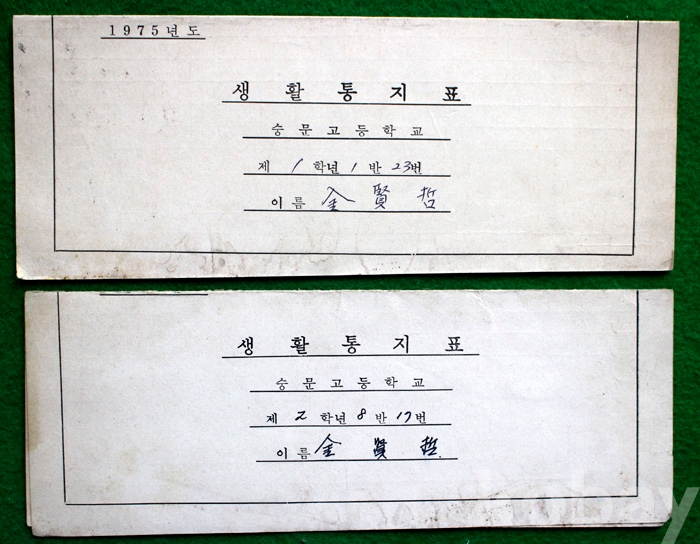 1975년도
생활통지표
숭문고등학교
제 1 학년 1 반 23번
이름 金賢哲
생활통지표
숭문고등학교
제 2 학년 8 반 17번
이름 金賢哲